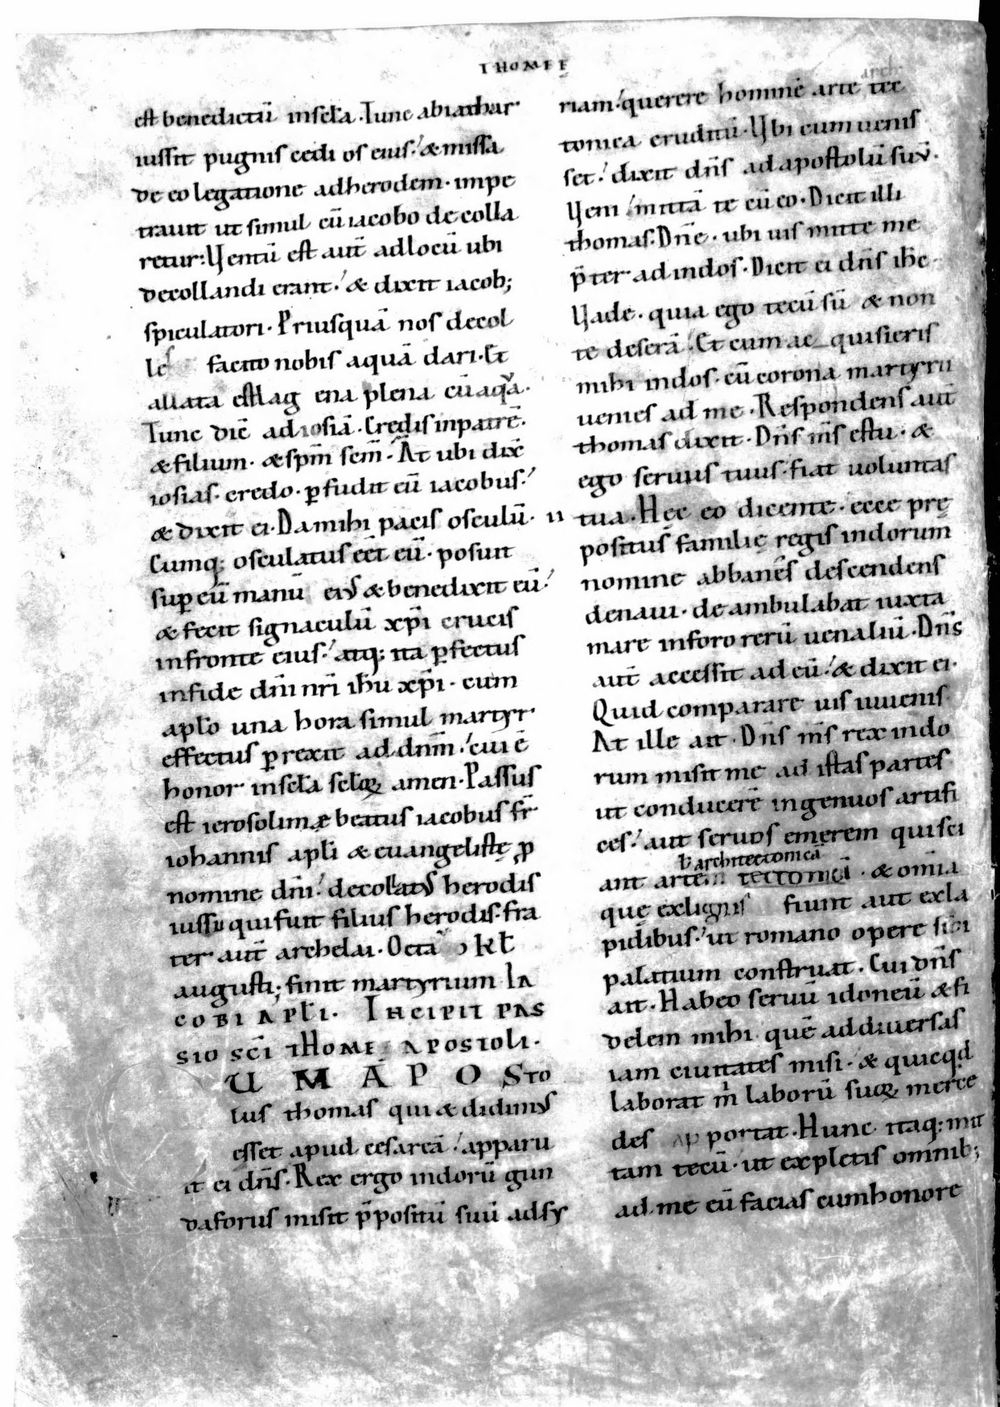 THOMEE
est benedictū insc̄la. Tunc abiathar
iussit pugnis cedi os eius. & missa
de eo legatione ad herodem. impe
trauit ut simul cū iacobo decolla
retur: Uentū est aut̄ ad locū ubi
decollandi erant. & dixit iacob;
spiculatori. Priusquā nos decol
les facito nobis aquā dari. Et
allata est lag ena plena cū aqua.
Tunc dic̄ ad iosiā. Credis in patrē.
& filium. & sp̄m sc̄m. At ubi dix̄
iosias. credo. ꝑfudit eū iacobus.
& dixit ei. Da mihi pacis osculū.
Cumq; osculatus eēt eū. posuit
suꝑ eū manū eiꝰ & benedixit eū.
& fecit signaculū xp̄i crucis
in fronte eius. atq; ita ꝑfectus
in fide dn̄i nr̄i ih̄u xp̄i. cum
aplo una hora simul martyr
effectus ꝑrexit ad dn̄m. cui ē
honor insc̄la sc̄loꝝ amen. Passus
est ierosolimę beatus iacobus fr̄
iohannis apli & euangelistę ꝑ
nomine dn̄i. decollatꝰ herodis
iussu qui fuit filius herodis. fra
ter aut̄ archelai. Octa
augusti; finit martyrium IA
COBI APLI. INCIPIT PAS
SIO SCI THOME APOSTOLI.
UM APOSTO
lus thomas qui & didimꝰ
esset apud cesareā. apparu
it ei dn̄s. Rex ergo indorū gun
daforus misit p̄positū suū ad sy
riam. querere hominē arte tec
tonica eruditū. Ubi cum uenis
set. dixit dn̄s ad apostolū suū.
Ueni mittā te cū eo. Dicit illi
thomas. Dn̄e. ubi uis mitte me
p̄ter ad indos. Dicit ei dn̄s ih̄c
Uade. quia ego tecū sū & non
te deserā. Et cum ac quisieris
mihi indos. cū corona martyrii
uenies ad me. Respondens aut̄
thomas dixit. Dn̄s m̄s es tu. &
ego seruus tuus. fiat uoluntas
tua. Hęc eo dicente. ecce pre
positus familię regis indorum
nomine abbanēs descendens
de naui. de ambulabat iuxta
mare in foro rerū uenaliū. Dn̄s
aut̄ accessit ad eū. & dixit ei.
Quid comparare uis iuuenis.
At ille ait. Dn̄s m̄s rex indo
rum misit me ad istas partes
ut conducerē ingenuos artifi
ces. aut seruos emerem qui sci
architectonicā
ant artem tectonicā. & om̄ia
quę ex lignis fiunt aut ex la
pidibus. ut romano opere sibi
palatium construat. Cui dn̄s
ait. Habeo seruū idoneū & fi
delem mihi. quē ad diuersas
iam ciuitates misi. & quicqd
laborat m̄ laborū suoꝝ merce
des apportat. Hunc itaq; mit
tam tecū. ut expletis omnib;
ad me eū facias cum honore